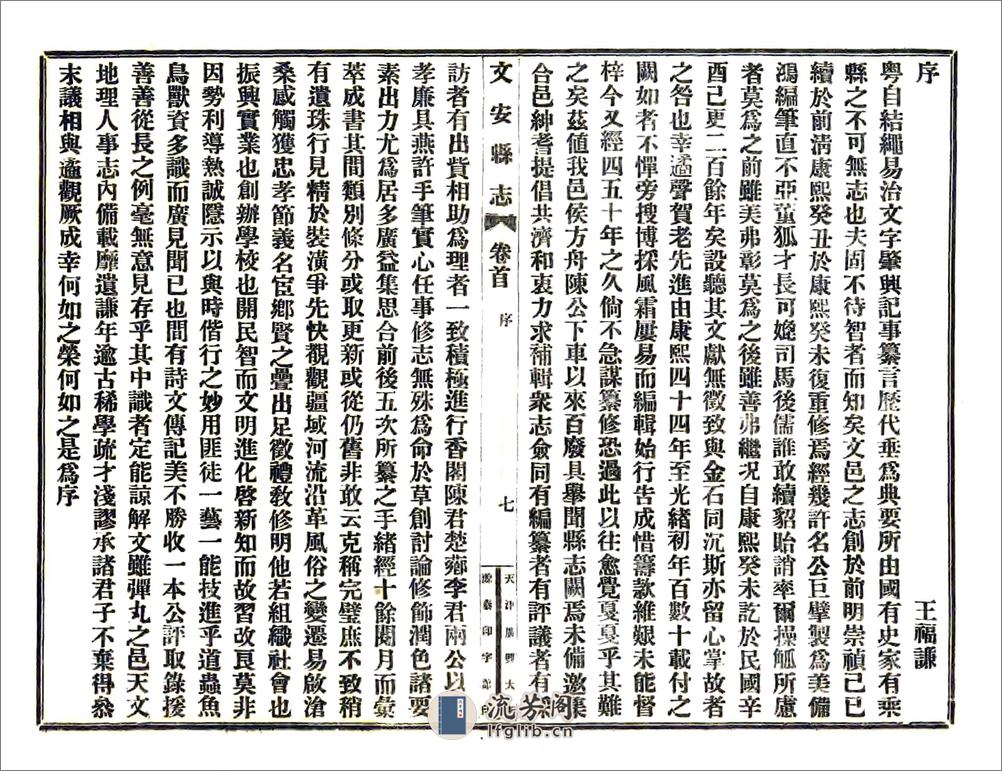 序
王福謙
粵自結繩易治文字肇興記事纂言歷代垂爲典要所由國有史家有乘
縣之不可無志也夫固不待智者而知矣文邑之志創於前明崇禎己巳
續於前清康熙癸丑於康熙癸未復重修焉經幾許名公巨擘製爲美備
鴻編筆直不亞董狐才長可媲司馬後儒誰敢續貂貽誚率爾操觚所慮
者莫爲之前雖美弗彰莫爲之後雖善弗繼况自康熙癸未訖於民國辛
酉已更二百餘年矣設聽其文獻無徵致與金石同沉斯亦留心掌故者
之咎也幸邁聲賀老先進由康熙四十四年至光緒初年百數十載付之
闕如者不憚旁搜博採風霜屢易而編輯始行告成惜籌款維艱未能督
梓今又經四五十年之久倘不急謀纂修恐過此以往愈覺戛戛乎其難
之矣茲値我邑侯方舟陳公下車以來百廢具舉聞縣志闕焉未備邀集
合邑紳耆提倡共濟和衷力求補輯衆志僉同有編纂者有評議者有採
文安縣志
卷首
序
七
天津廣興大
源泰印字館印
訪者有出貲相助爲理者一致積極進行香閣陳君楚薌李君兩公以
孝廉具燕許手筆實心任事修志無殊爲命於草創討論修飾潤色諸要
素出力尤爲居多廣益集思合前後五次所纂之手緒經十餘閱月而彙
萃成書其間類別條分或取更新或從仍舊非敢云克稱完璧庶不致稍
有遺珠行見精於裝潢爭先快觀觀疆域河流沿革風俗之變遷易啟滄
桑感觸獲忠孝節義名宦鄉賢之疊出足徵禮敎修明他若組織社會也
振興實業也創辦學校也開民智而文明進化啓新知而故習改良莫非
因勢利導熱誠隱示以與時偕行之妙用匪徒一藝一能技進乎道蟲魚
鳥獸資多識而廣見聞已也間有詩文傳記美不勝收一本公評取錄援
善善從長之例毫無意見存乎其中識者定能諒解文雖彈丸之邑天文
地理人事志內備載靡遺謙年逾古稀學疏才淺謬承諸君子不棄得叅
末議相與遹觀厥成幸何如之榮何如之是爲序
流芳阁
lfglib.cn